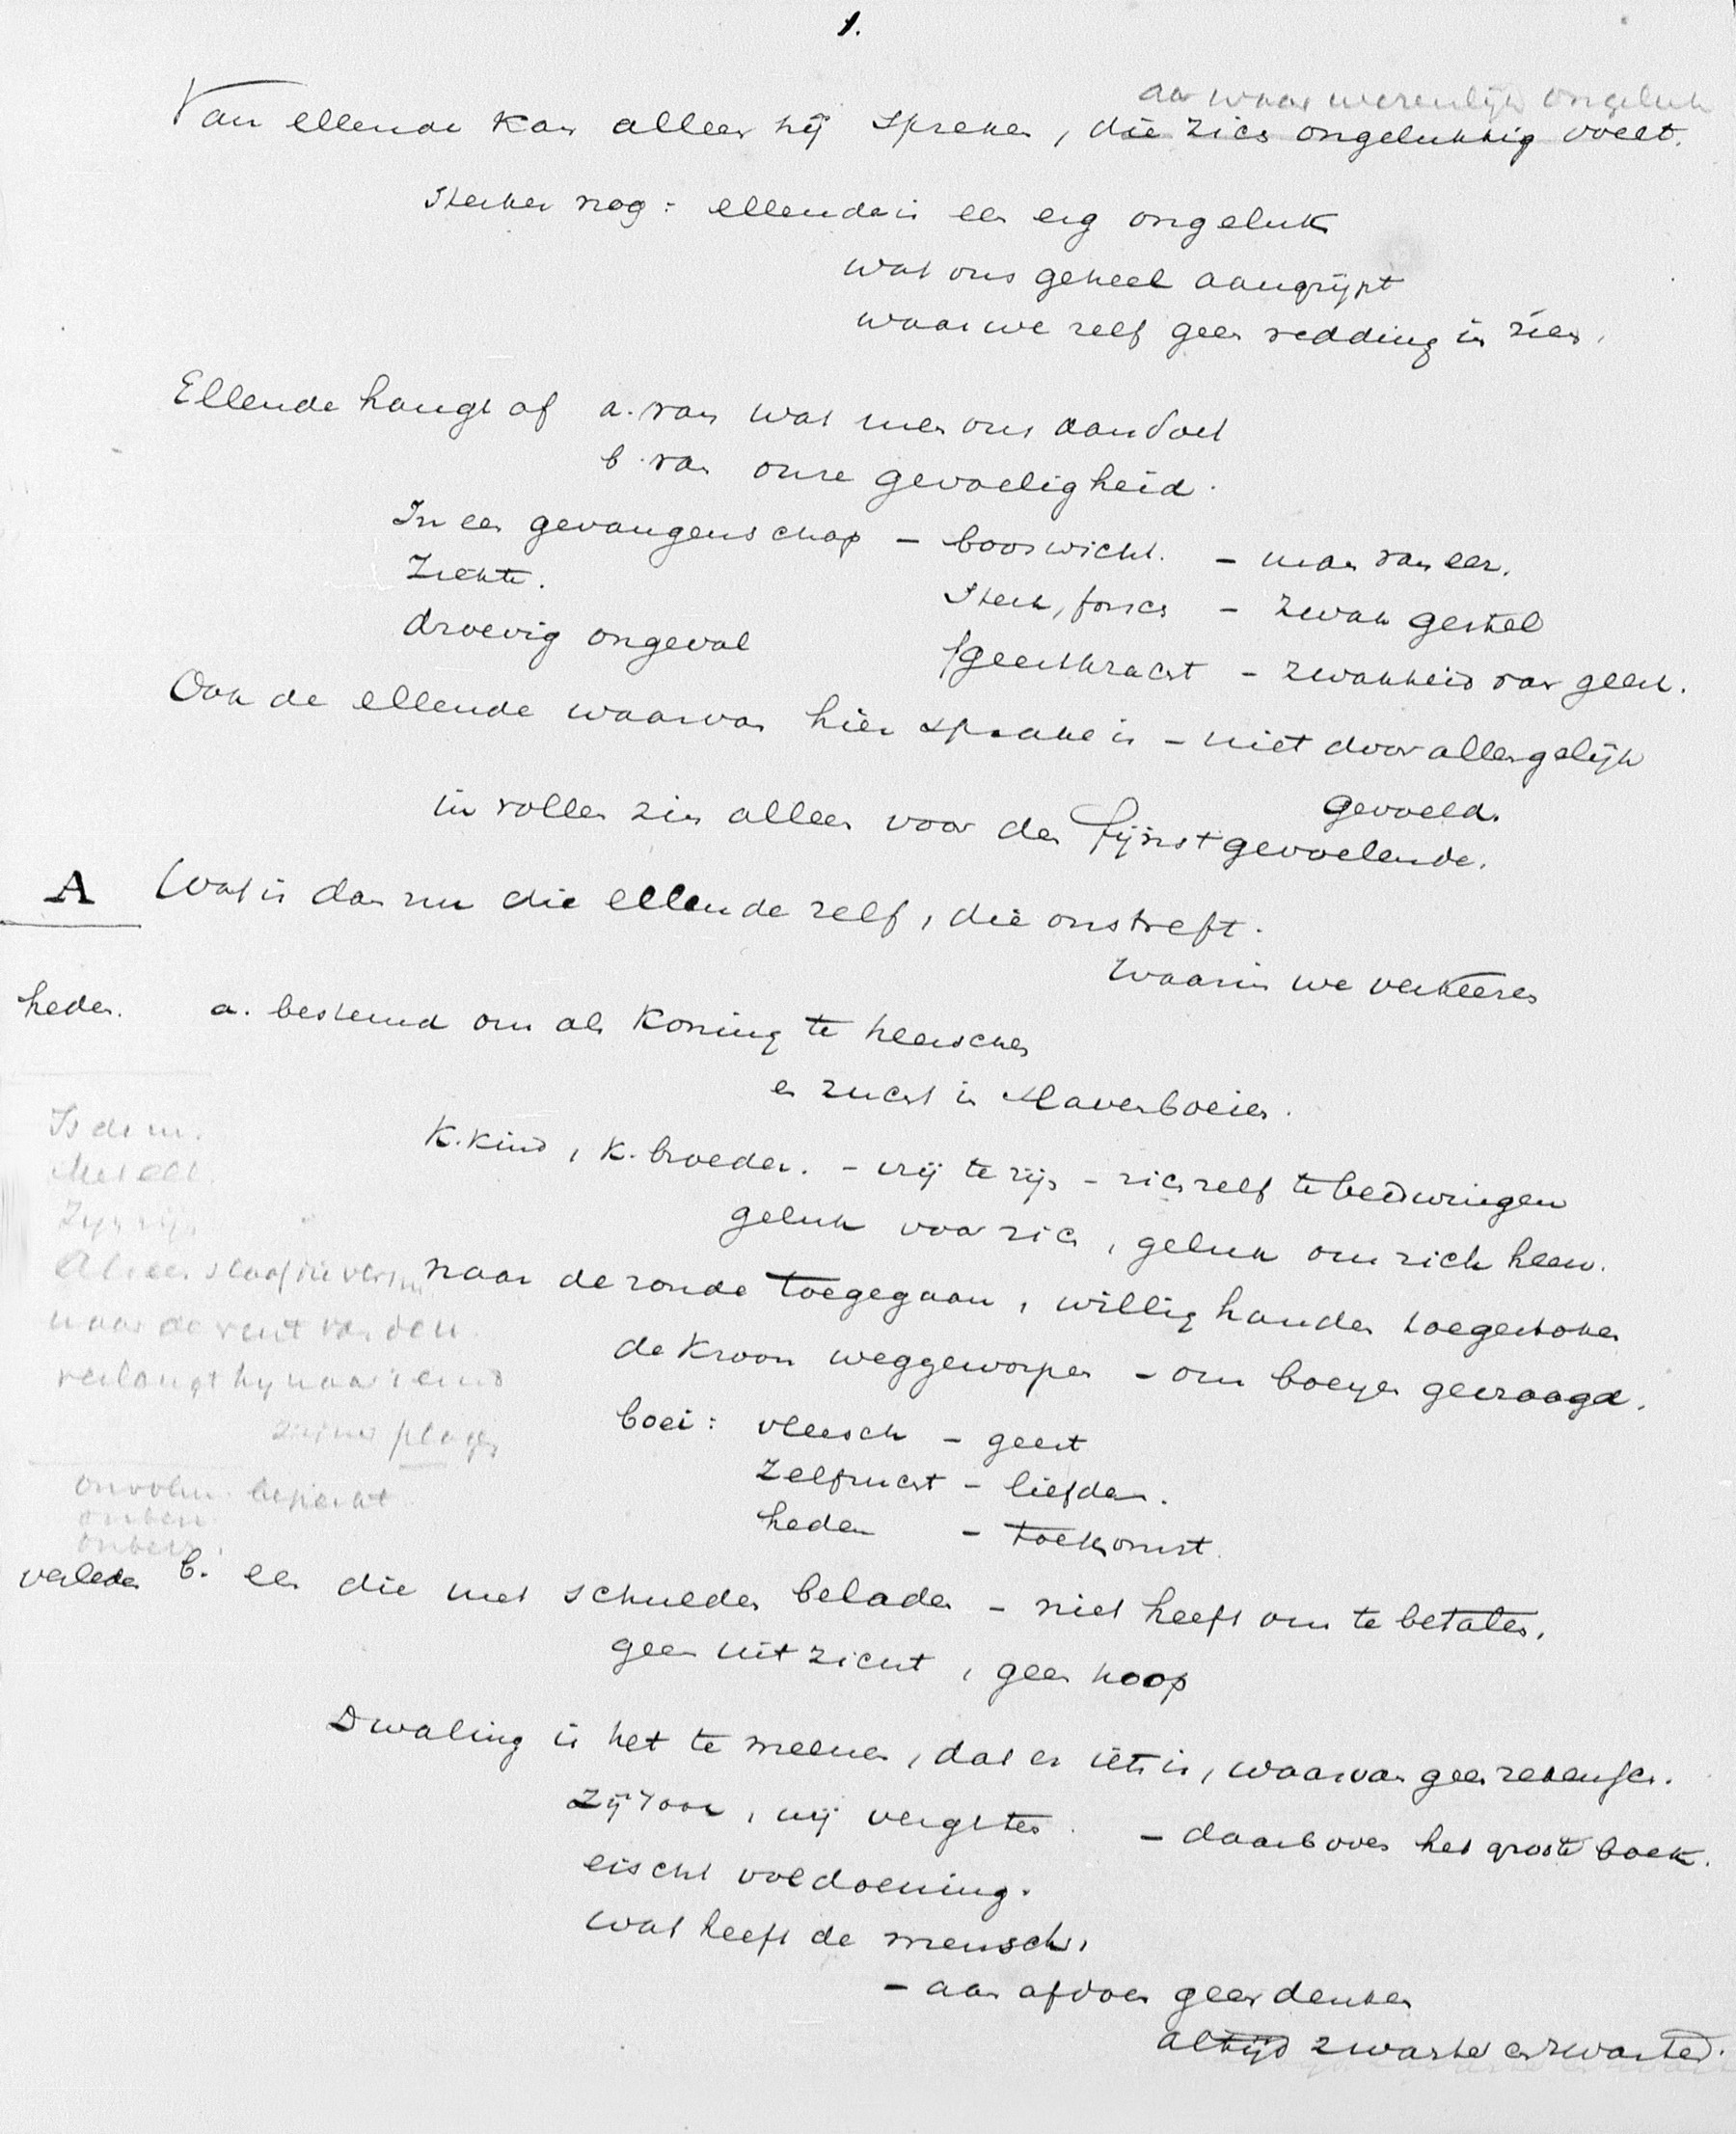 1.
Van ellende kan alleen hij spreken, die zich ongelukkig voelt.
Sterker nog: ellende is een erg ongeluk
wat ons geheel aangrijpt
waar we zelf geen redding in zien.
Ellende hangt af a. van wat men ons aandoet
b. van onze gevoeligheid.
In een gevangenschap - booswicht. - man van eer.
Ziekte. Sterk, forsch - zwak gestel
droevig ongeval geestkracht - zwakheid van geest.
Ook de ellende waarvan hier sprake is - niet door allen gelijk
gevoeld.
in vollen zin alleen voor den fijnst gevoelende.
A Wat is dan nu die ellende zelf, die ons treft.
Waarin we verkeeren
heden. a. bestemd om als Koning te heerschen
en zucht in slavenboeien.
K. kind, K. broeder. - vrij te zijn - zich zelf te bedwingen
geluk voor zich, geluk om zich heen.
naar de zonde toegegaan, willig handen toegestoken
de Kroon weggeworpen - om boeyen gevraagd.
boei: vleesch - geest
Zelfzucht - liefde
heden - toekomst.
Is de m.
Met ell.
Zijn zijn
Als een slaaf die
naar de rust van den
verlangt hij naar 't eind
zijner plagen
verleden b. een die met schulden beladen - niet heeft om te betalen.
geen uitzicht, geen hoop
Dwaling is het te meenen, dat er iets is, waarvan geen rekensch.
wij vergeten. - daarboven het groote boek.
eischt voldoening.
Wat heeft de mensch,
- aan afdoen geen denken
altijd zwarter en zwarter.